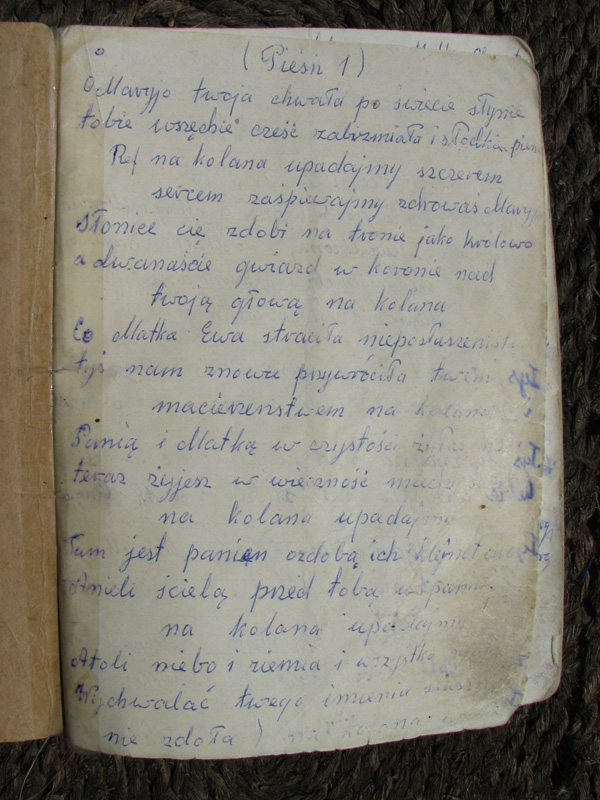 (Pieśń 1)
O Maryjo twoja chwała po świecie słynie
tobie wszędzie cześć zabrzmiała i słodkie
Ref na kolana upadajmy szczerem
sercem zaśpiewajmy zdrowaś Maryjo
Słonice cię zdobi na tronie jako królowo
a dwanaście gwiazd w koronie nad
twoją głową na kolana
Co Matka Ewa straciła
tyś nam znowu przywróciła twem
macierzenstwem na kolana
Panią i Matką w czystości
teraz żyjesz w wieczność
na kolana upadajmy
Tam jest panien ozdobą ich klejnot
Anieli ścielą przed tobą
na kolana upadajmy
Atoli niebo i ziemia i wszystko
Wychwalać twego imienia
nie zdoła) na kolana